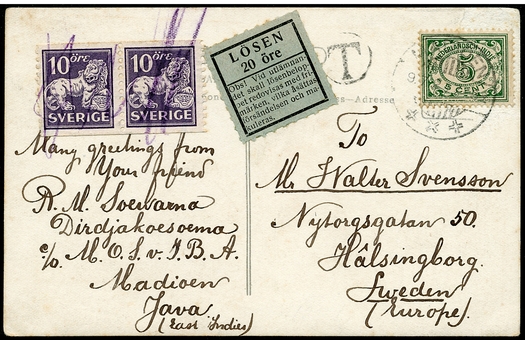 10 öre
SVERIGE
10 öre
SVERIGE
LÖSEN
20 öre
Obs! Vid utlämnan-
det skall lösenbelop-
pet redovisas med fri-
märken, vilka åsättas
försändelsen och ma-
kuleras.
T
NEDERLANDSCH-INDIË
5
CENT
Adresse
Many greetings from
Your friend
R. M. Soewarna
Dirdjakoesoema
c/o. M. O. S. v. I. B. A.
Madioen
Java
(East Indies)
To
Mr Walter Svensson
Nytorgsgatan 50.
Hälsingborg.
Sweden
(Europe).